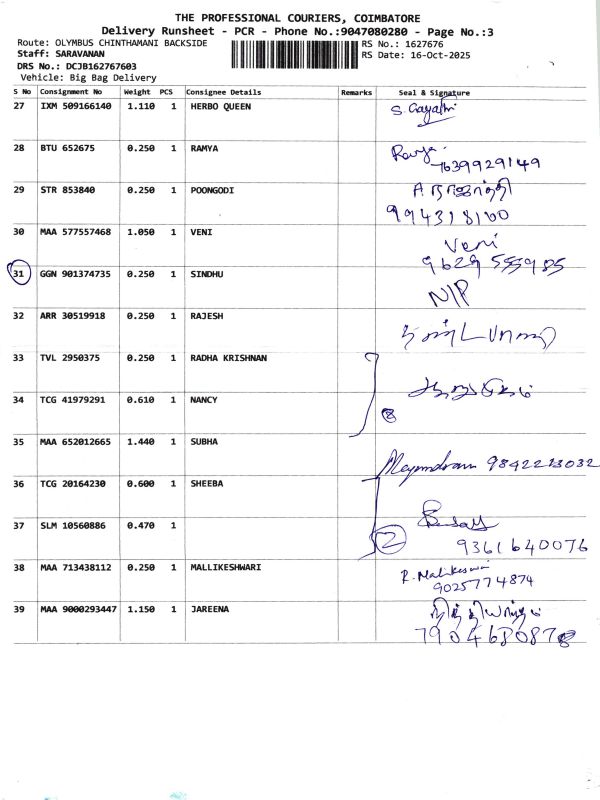 THE PROFESSIONAL COURIERS, COIMBATORE
Delivery Runsheet - PCR - Phone No.:9047080280 - Page No.:3
Route: OLYMBUS CHINTHAMANI BACKSIDE RS No.: 1627676
Staff: SARAVANAN RS Date: 16-Oct-2025
DRS No.: DCJB162767603
Vehicle: Big Bag Delivery
S No Consignment No Weight PCS Consignee Details Remarks Seal & Signature
27 IXM 509166140 1.110 1 HERBO QUEEN S. Gayathri
28 BTU 652675 0.250 1 RAMYA Ramya
7639929149
29 STR 853840 0.250 1 POONGODI
9943181100
30 MAA 577557468 1.050 1 VENI Veni
9629 555985
31 GGN 901374735 0.250 1 SINDHU N/P
32 ARR 30519918 0.250 1 RAJESH
33 TVL 2950375 0.250 1 RADHA KRISHNAN
34 TCG 41979291 0.610 1 NANCY
35 MAA 652012665 1.440 1 SUBHA 9842213032
36 TCG 20164230 0.600 1 SHEEBA
37 SLM 10560886 0.470 1 2
9361640076
38 MAA 713438112 0.250 1 MALLIKESHWARI R. Malikeswari
9025774874
39 MAA 9000293447 1.150 1 JAREENA
7904680878